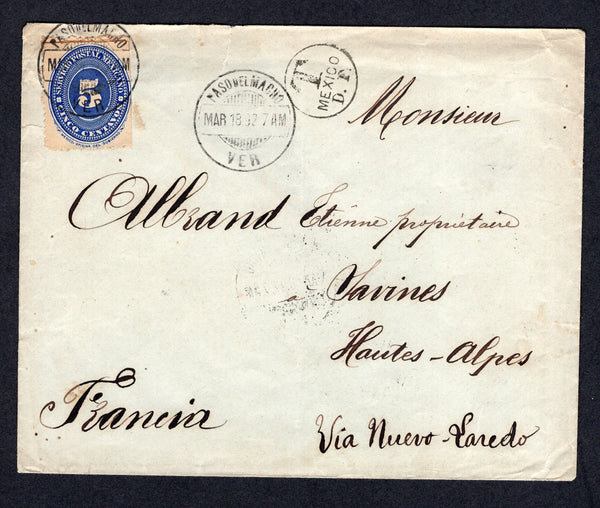 PASO DEL MACHO
MAR
M
VER
SERVICIO POSTAL MEXICANO
5
CINCO CENTAVOS
PASO DEL MACHO
MAR 18 92 7 AM
VER
T
MEXICO
D. F.
Monsieur
Albrand Etienne propriétaire
a Savines
Hautes-Alpes
Francia
Via Nuevo-Laredo